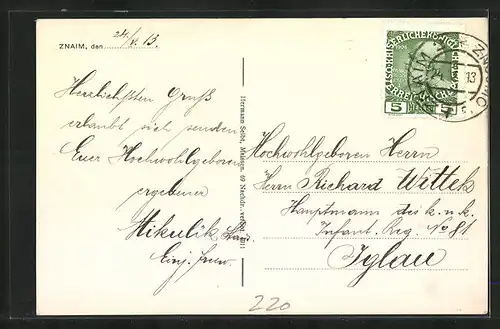 ZNAIM, den 24/V. 13.
Herzlichsten Gruß
erlaubt sich senden
Euer Hochwohlgeboren
ergebener
Mikulik
Einj. Freiw.
Hermann Seibt, Meissen. 69 Nachdr. verbot. 1911
KAISERLICHE KÖNIGL
5 5
13
Hochwohlgeboren Herrn
Herrn Richard Wittek
Hauptmann des k. u. k.
Infant. Reg. No 81
Iglau
220